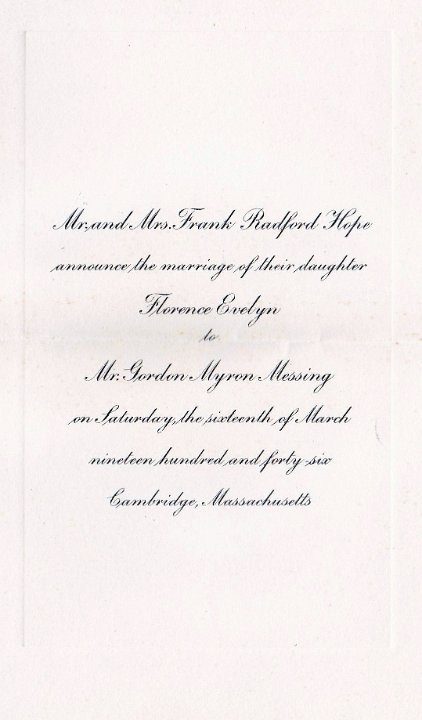 Mr. and Mrs. Frank Radford Hope
announce the marriage of their daughter
Florence Evelyn
to
Mr. Gordon Myron Messing
on Saturday, the sixteenth of March
nineteen hundred and forty-six
Cambridge, Massachusetts